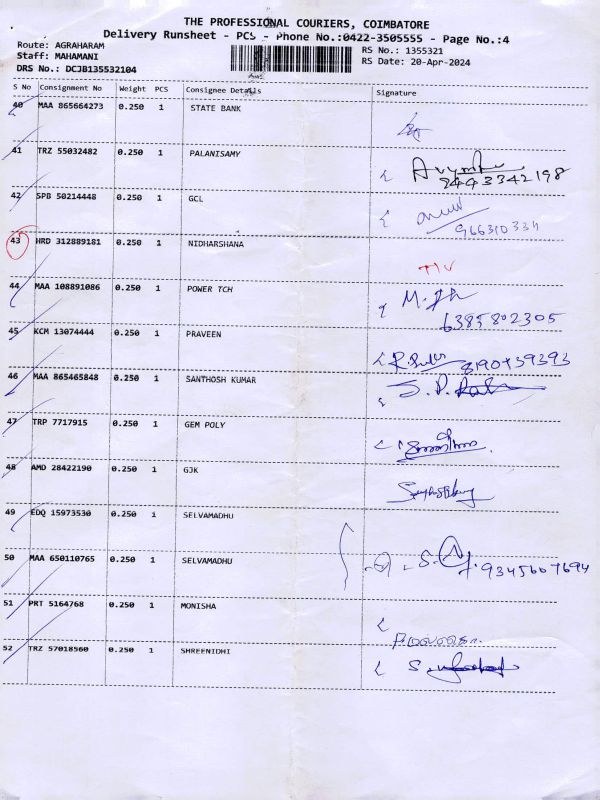 THE PROFESSIONAL COURIERS, COIMBATORE
Delivery Runsheet - PCS - Phone No.:0422-3505555 - Page No.:4
Route: AGRAHARAM
Staff: MAHAMANI
DRS No.: DCJB135532104
RS No.: 1355321
RS Date: 20-Apr-2024
S No Consignment No Weight PCS Consignee Details Signature
40 MAA 865664273 0.250 1 STATE BANK
41 TRZ 55032482 0.250 1 PALANISAMY
9443342198
42 SPB 50214448 0.250 1 GCL
43 HRD 312889181 0.250 1 NIDHARSHANA
44 MAA 108891086 0.250 1 POWER TCH
6385802305
45 KCM 13074444 0.250 1 PRAVEEN
46 MAA 865465848 0.250 1 SANTHOSH KUMAR
47 TRP 7717915 0.250 1 GEM POLY
48 AMD 28422190 0.250 1 GJK
49 EDQ 15973530 0.250 1 SELVAMADHU
50 MAA 650110765 0.250 1 SELVAMADHU
9345607694
51 PRT 5164768 0.250 1 MONISHA
52 TRZ 57018560 0.250 1 SHREENIDHI